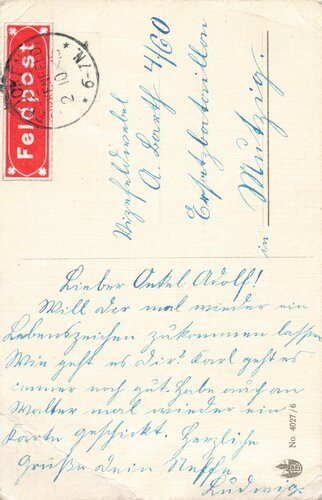 Feldpost
2 10
* 6-7N. *
Vizefeldwebel
A. Barth 4/60
Ersatzbataillon
in Mutzig.
Lieber Onkel Adolf!
Will dir mal wieder ein
Lebenszeichen zukommen lassen
Wie geht es dir? Karl geht es
immer noch gut. Habe auch an
Walter mal wieder ein
Karte geschickt. Herzliche
Grüße dein Neffe
Ludwig.
No. 4027/6